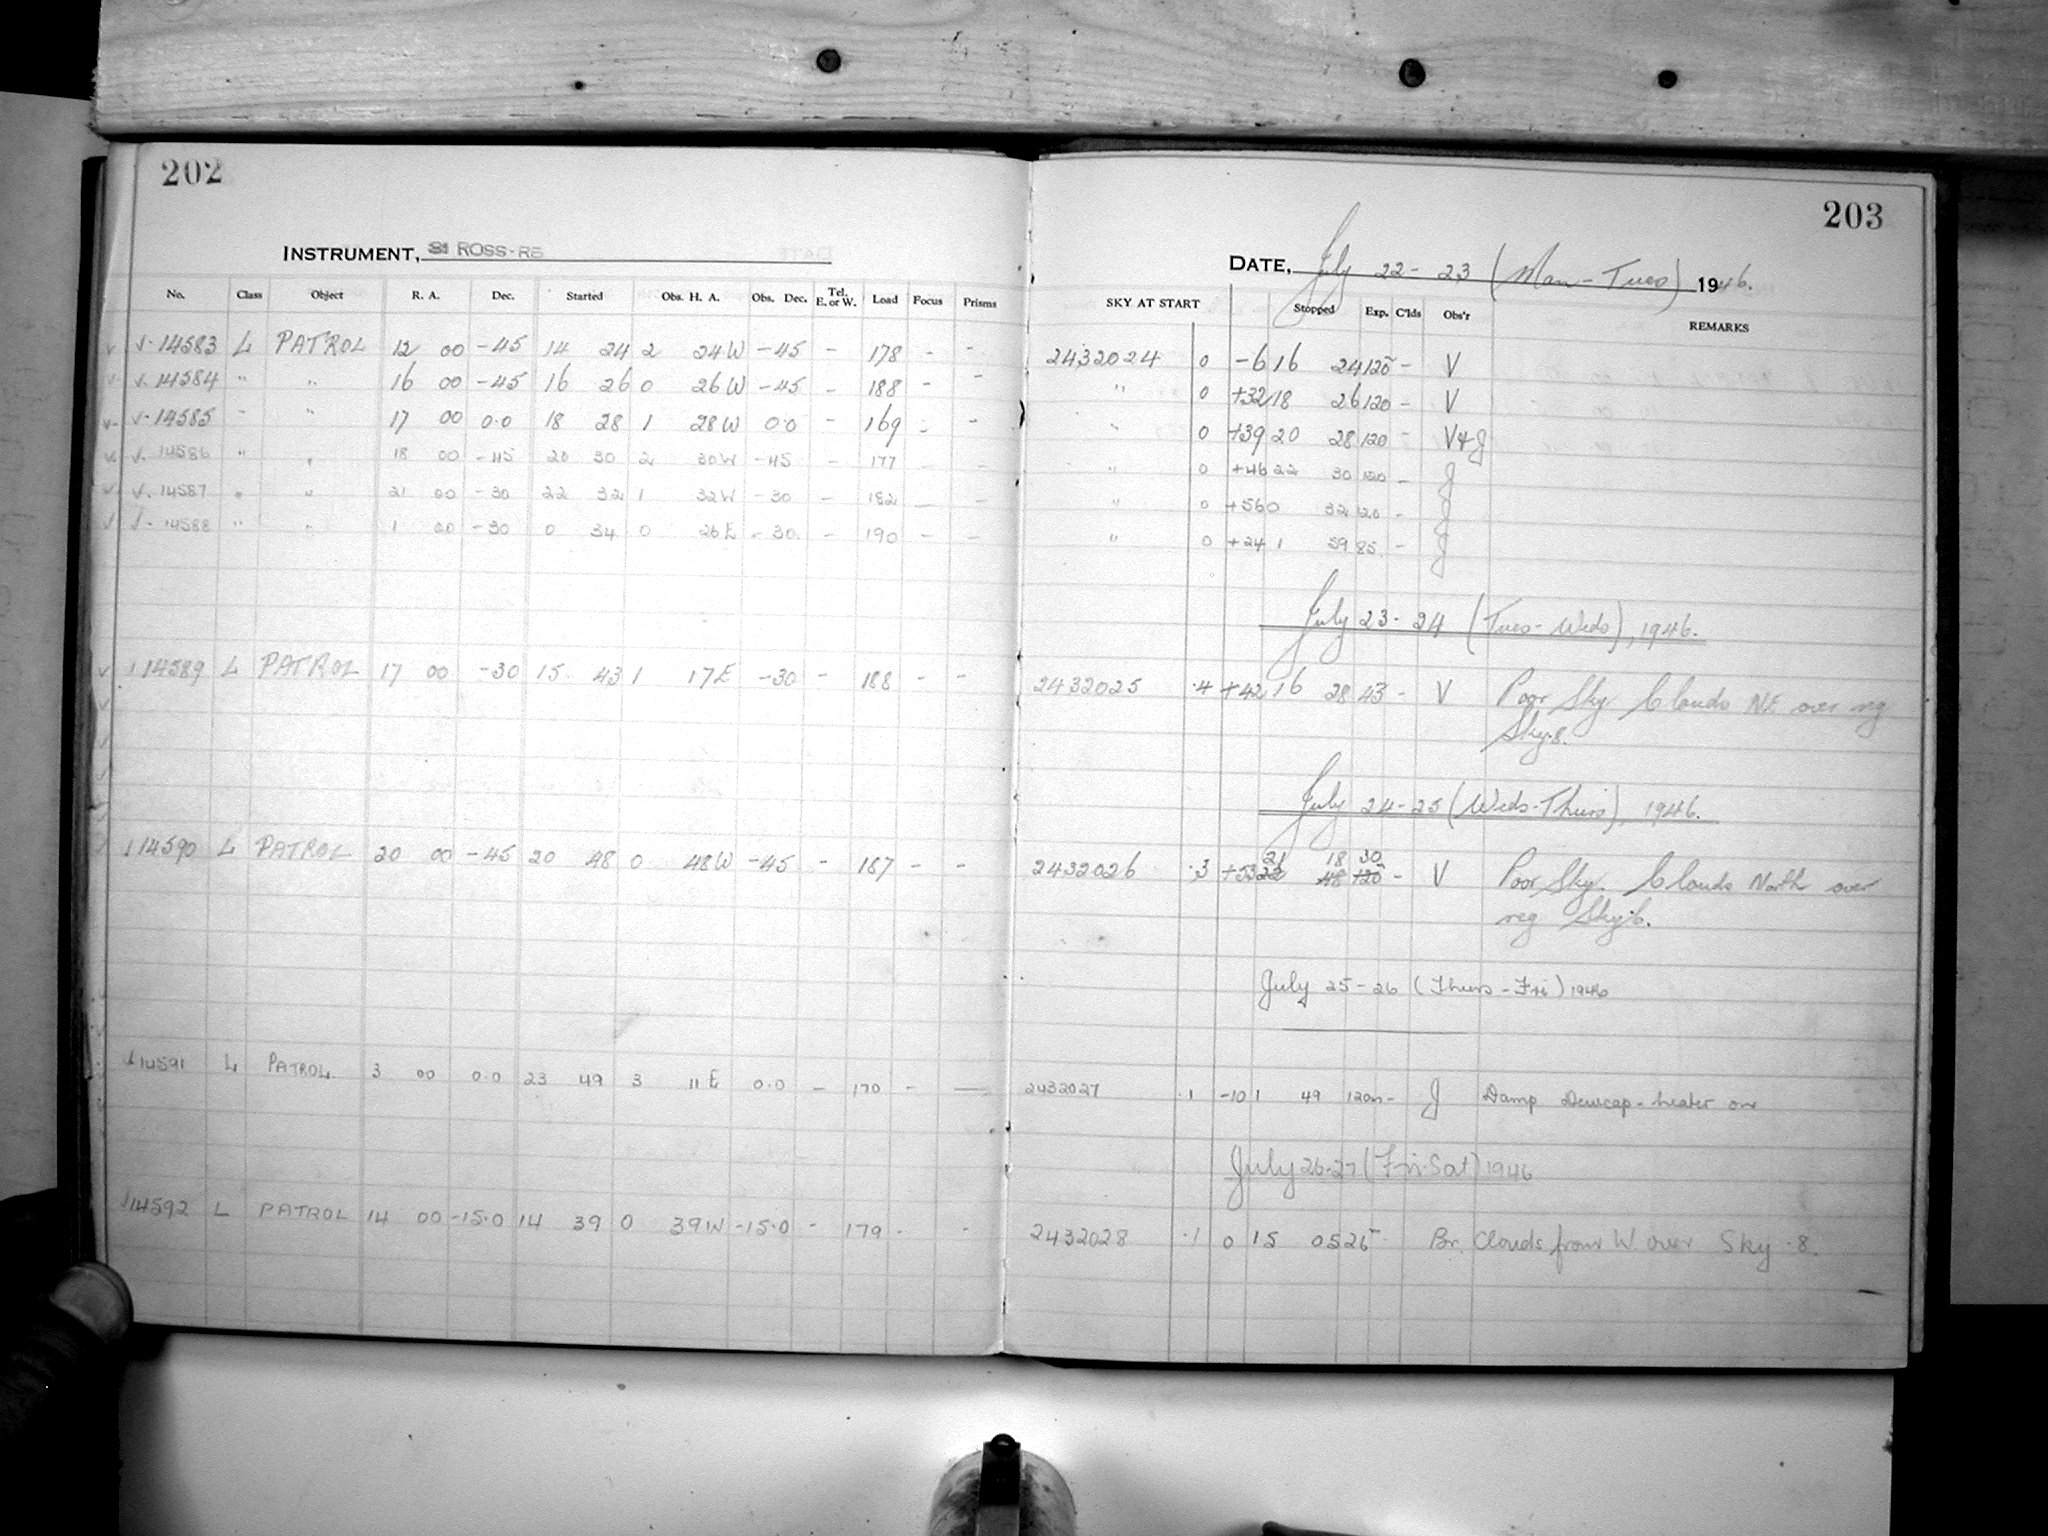 202
INSTRUMENT, ROSS-RE
No. Class Object R. A. Dec. Started Obs. H. A. Obs. Dec. Tel. E. or W. Load Focus Prisms
√-14583 L PATROL 12 00 -45 14 24 2 24W -45 - 178 - -
√-14584 " " 16 00 -45 16 26 0 26W -45 - 188 - -
√-14585 " " 17 00 0.0 18 28 1 28W 0.0 - 169 - -
√-14586 " " 18 00 -45 20 30 2 30W -45 - 177 - -
√-14587 " " 21 00 -30 22 32 1 32W -30 - 182 - -
√-14588 " " 1 00 -30 0 34 0 26E -30 - 190 - -
14589 L PATROL 17 00 -30 15 43 1 17E -30 - 188 - -
14590 L PATROL 20 00 -45 20 48 0 48W -45 - 187 - -
14591 L PATROL 3 00 0.0 23 49 3 11E 0.0 - 170 - -
14592 L PATROL 14 00 -15.0 14 39 0 39W -15.0 - 179 - -
203
DATE, July 22-23 (Mon-Tues) 1946.
SKY AT START Stopped Exp. C'lds Obs'r REMARKS
2432024 0 -6 16 24 120 - V
" 0 +32 18 26 120 - V
" 0 +39 20 28 120 - V+J
" 0 +46 22 30 120 - J
" 0 +56 0 32 120 - J
" 0 +24 1 59 85 - J
July 23-24 (Tues-Weds), 1946.
2432025 .4 +42 16 28 43 - V Poor Sky. Clouds NE over reg
Sky.8.
July 24-25 (Weds-Thurs), 1946.
21 18 30
2432026 .3 +53 22 48 120 - V Poor Sky. Clouds North over
reg Sky.6.
July 25-26 (Thurs-Fri) 1946
2432027 .1 -10 1 49 120m - J Damp Dewcap-heater on
July 26-27 (Fri-Sat) 1946
2432028 .1 0 15 05 26 - Br. Clouds from W over Sky .8.